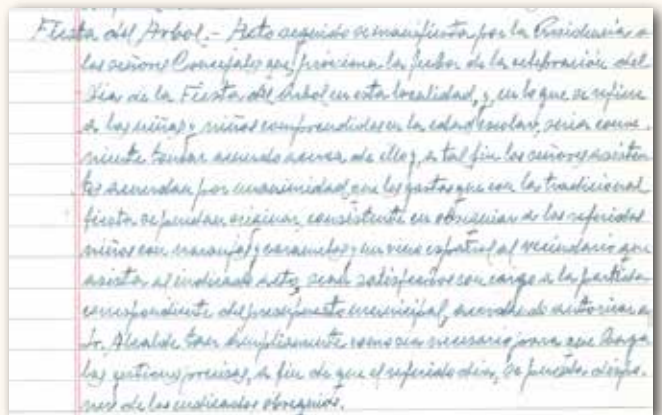 Fiesta del Arbol.- Acto seguido se manifiesta por la Presidencia a
los señores Concejales que, próxima la fecha de la celebración del
Dia de la Fiesta del Arbol en esta localidad, y en lo que se refiere
a las niñas y niños comprendidos en la edad escolar, seria conve-
niente tomar acuerdo acerca de ello y a tal fin los señores asisten-
tes acuerdan por unanimidad, que los gastos que con la tradicional
fiesta se puedan originar, consistente en obsequiar a los referidos
niños con naranjas y caramelos y un vino español al vecindario que
asista al indicado acto, sean satisfechos con cargo a la partida
correspondiente del presupuesto municipal, acordando autorizar a
Sr. Alcalde tan ampliamente como sea necesario para que haga
las gestiones precisas, a fin de que el referido dia, se puedan dispo-
ner de los indicados obsequios.